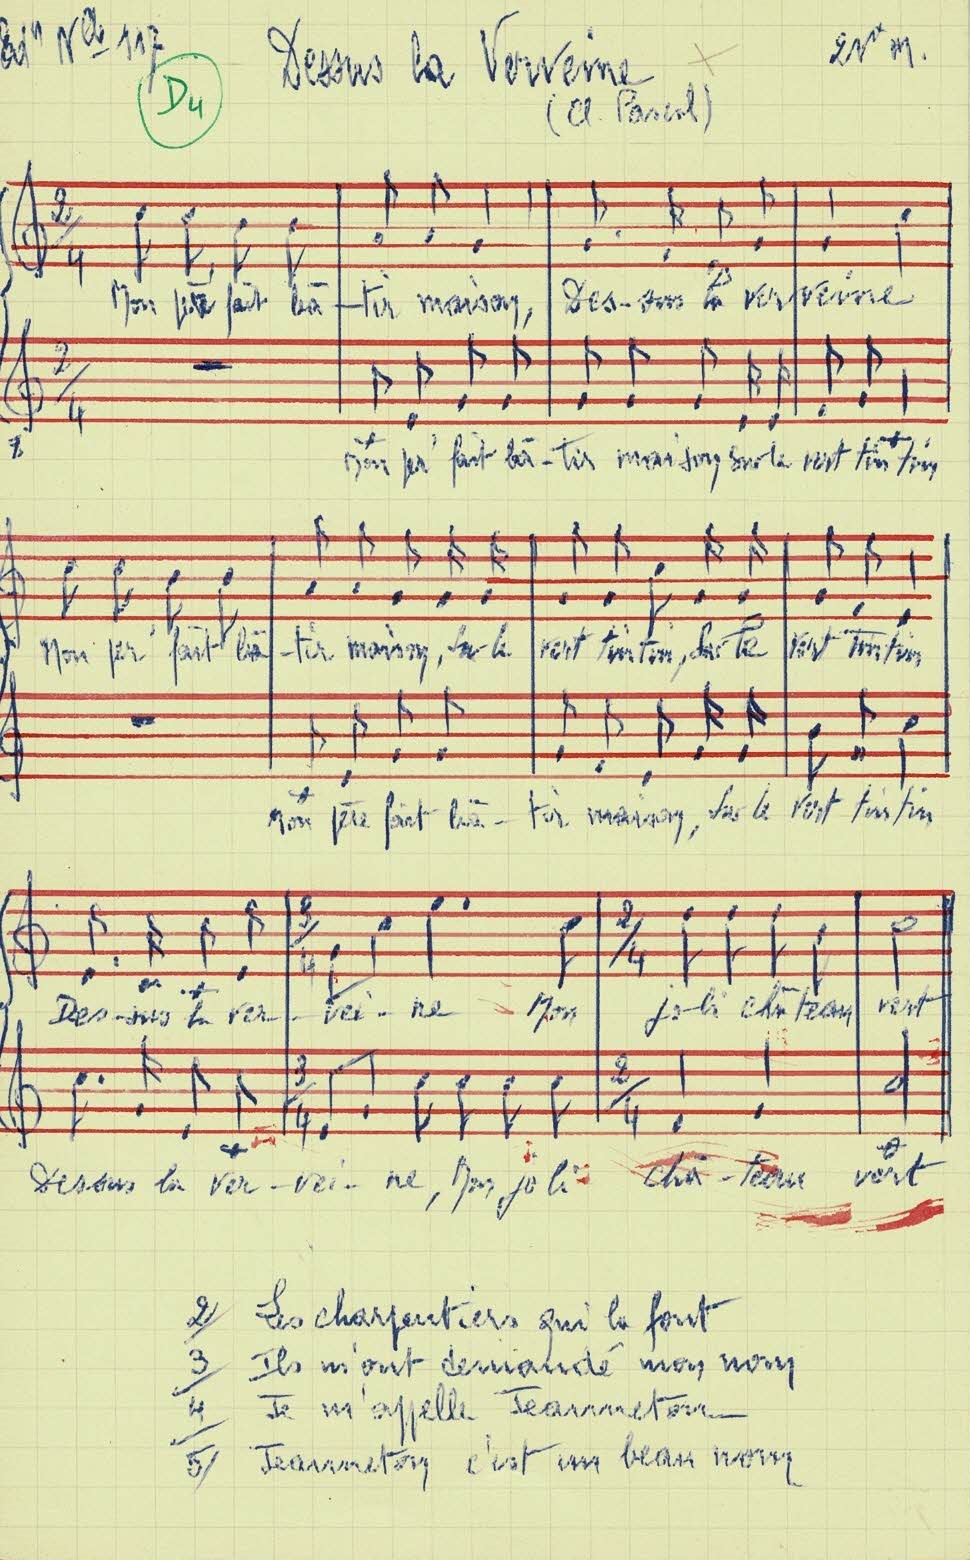 Edn Nelle 117 Dessus la Verveine 2 vx m.
D4
(Cl. Pascal)
2/4
Mon père fait bâ-tir maison, Des-sus la verveine
2/4
Mon pèr' fait bâ-tir maison sur le vert tintin
Mon pèr' fait bâ-tir maison, sur le vert tintin, sur le vert tintin
Mon père fait bâ-tir maison, sur le vert tintin
3/4 2/4
Des-sus la ver-vei-ne Mon jo-li château vert
3/4 2/4
Dessus la ver-vei-ne, Mon joli châ-teau vert
2/ Les charpentiers qui la font
3 Ils m'ont demandé mon nom
4 Je m'appelle Jeanneton
5/ Jeanneton c'est un beau nom